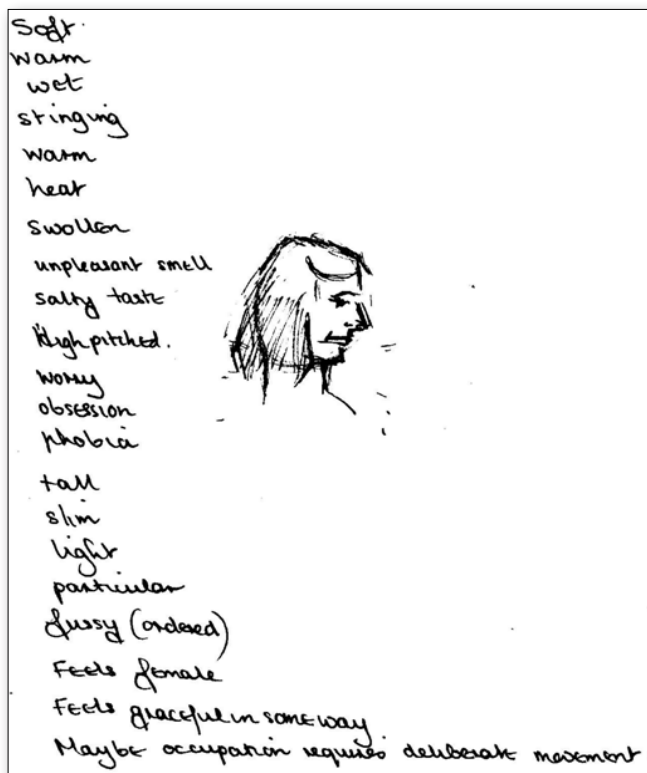 Soft.
warm
wet
stinging
warm
heat
swollen
unpleasant smell
salty taste
High pitched.
worry
obsession
phobia
tall
slim
light
particular
fussy (ordered)
Feels female
Feels graceful in some way
Maybe occupation requires deliberate movement